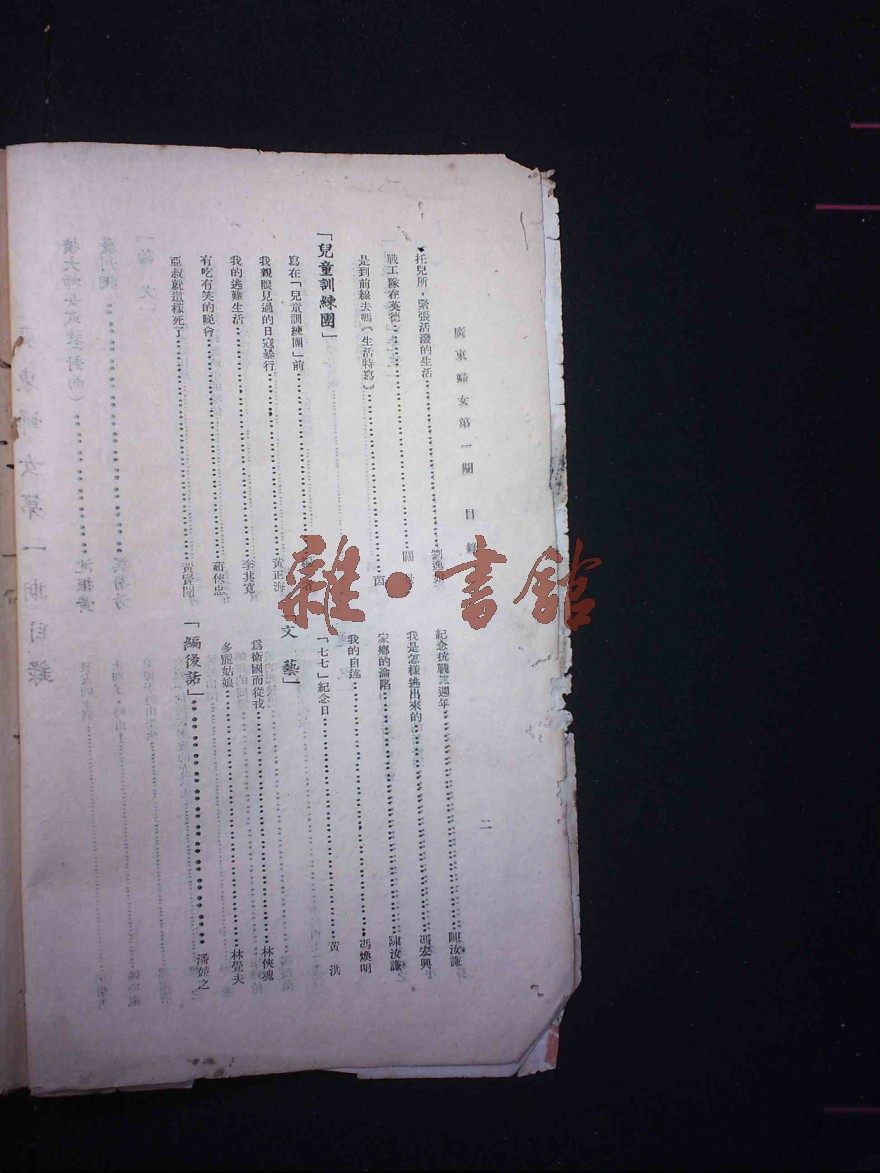 廣東婦女第一期 目錄
二
托兒所，緊張活潑的生活
戰工隊在英德
是到前線去嗎（生活特寫）……茵
「兒童訓練團」
寫在「兒童訓練團」前
我親眼見過的日寇暴行……黃正海
我的逃難生活……李其寬
有吃有笑的晚會……蕭俠忠
亞叔就這樣死了……黃賢開
紀念抗戰定週年……陳汝謙
我是怎樣逃出來的……馮宏興
家鄉的淪陷……陳汝謙
我的自述……馮煥明
「七七」紀念日……黃洪
「文藝」
為衛國而從戎……林俠魂
多寵姑娘……林覺夫
「編後話」……潘婉之
雜·書館